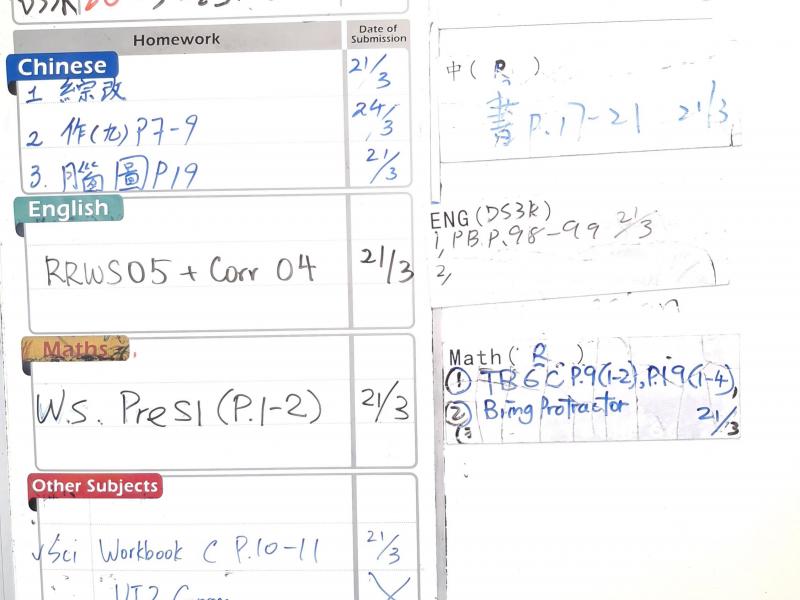 Homework
Date of Submission
Chinese
1 綜改 21/3
2 作(九) P7-9 24/3
3. 腦圖 P19 21/3
English
RRWS05 + Corr 04 21/3
Maths
W.S. PreS1 (P.1-2) 21/3
Other Subjects
√Sci Workbook C P.10-11 21/3
中( P )
書 P.17-21 21/3
ENG(DS3k)
1, P.B.P.98-99 21/3
2,
Math( R )
① TB6C P.9(1-2), P.19(1-4),
② Bring Protractor 21/3